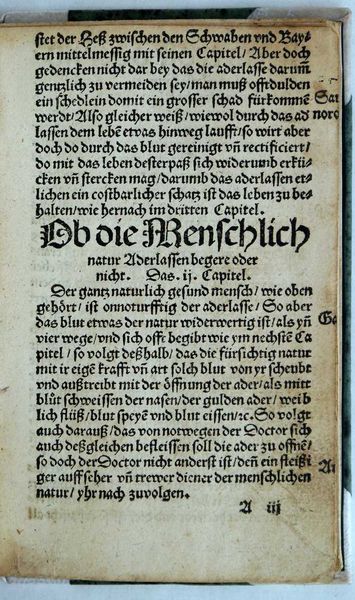 stet der Heß zwischen den Schwaben vnd Bay/
ern mittelmessig mit seinen Capitel/ Aber doch
gedencken nicht dar bey das die aderlasse darum̃
gentzlich zu vermeiden sey/ man muß offtdulden
ein schedlein domit ein grosser schad fürkommẽ
werdt/ Also gleicher weiß/ wiewol durch das ad
lassen dem lebẽ etwas hinweg laufft/ so wirt aber
doch do durch das blut gereinigt vñ rectificiert/
do mit das leben desterpaß sich widerumb erkü/
cken vñ stercken mag/ darumb das aderlassen et/
lichen ein costbarlicher schatz ist das leben zu be/
halten/ wie hernach im dritten Capitel.
Ob die Menschlich
natur Aderlassen begere oder
nicht. Das .ij. Capitel.
Der gantz naturlich gesund mensch/ wie oben
gehört/ ist onnoturfftig der aderlasse/ So aber
das blut etwas der natur widerwertig ist/ als yñ
vier wege/ vnd sich offt begibt wie ym nechstẽ Ca
pitel/ so volgt deßhalb/ das die fürsichtig natur
mit ir eigẽ krafft vñ art solch blut von yr scheubt
vnd außtreibt mit der öffnung der ader/ als mitt
blůt schweissen der nasen/ der gulden ader/ weib
lich flüß/ blut speyẽ vnd blut eissen/ ⁊c. So volgt
auch darauß/ das von notwegen der Doctor sich
auch deßgleichen befleissen soll die ader zu offnẽ/
so doch der Doctor nicht anderst ist/ deñ ein fleißi
ger auff seher vñ trewer diener der menschlichen
natur/ yhr nach zuvolgen.
A iij